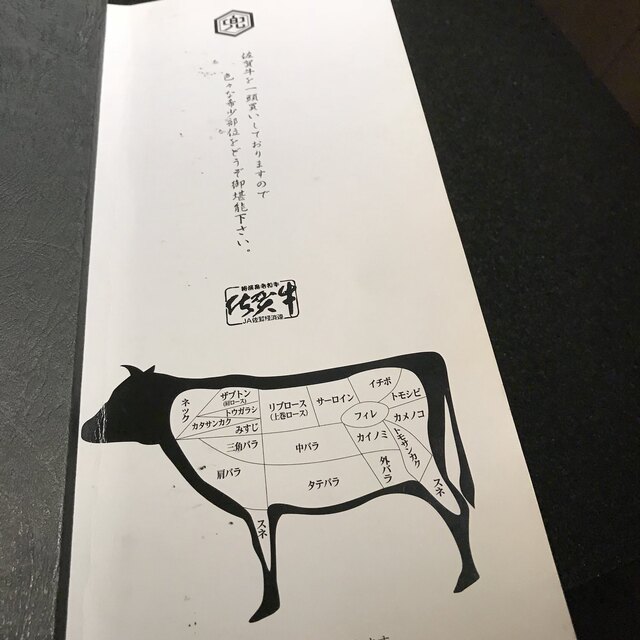 兜
佐賀牛を一頭買いしておりますので
色々な希少部位をどうぞ御堪能下さい。
佐賀牛
JA佐賀経済連
ネック
ザブトン
(肩ロース)
トウガラシ
カタサンカク
みすじ
リブロース
(上巻ロース)
サーロイン
イチボ
トモシビ
フィレ
カメノコ
三角バラ
中バラ
カイノミ
トモサンカク
肩バラ
タテバラ
外バラ
スネ
スネ